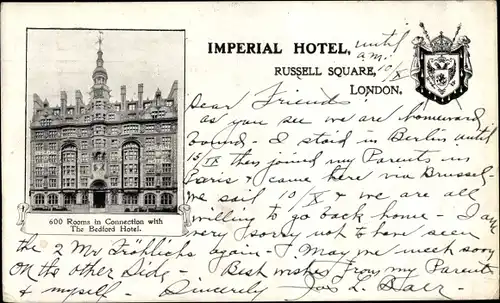 IMPERIAL HOTEL,
RUSSELL SQUARE,
LONDON.
until
am.
10/X
600 Rooms in Connection with
The Bedford Hotel.
Dear Friends!
as you see we are homeward
bound. - I staid in Berlin until
15/IX then joined my Parents in
Paris & came here via Brussel-
we sail 10/X & we are all
willing to go back home - I am
very sorry not to have seen
the 2 Mr Fröhlichs again - I May we meet soon
on the other side - Best wishes from my Parents
& myself. - Sincerely Jos L. Baer.